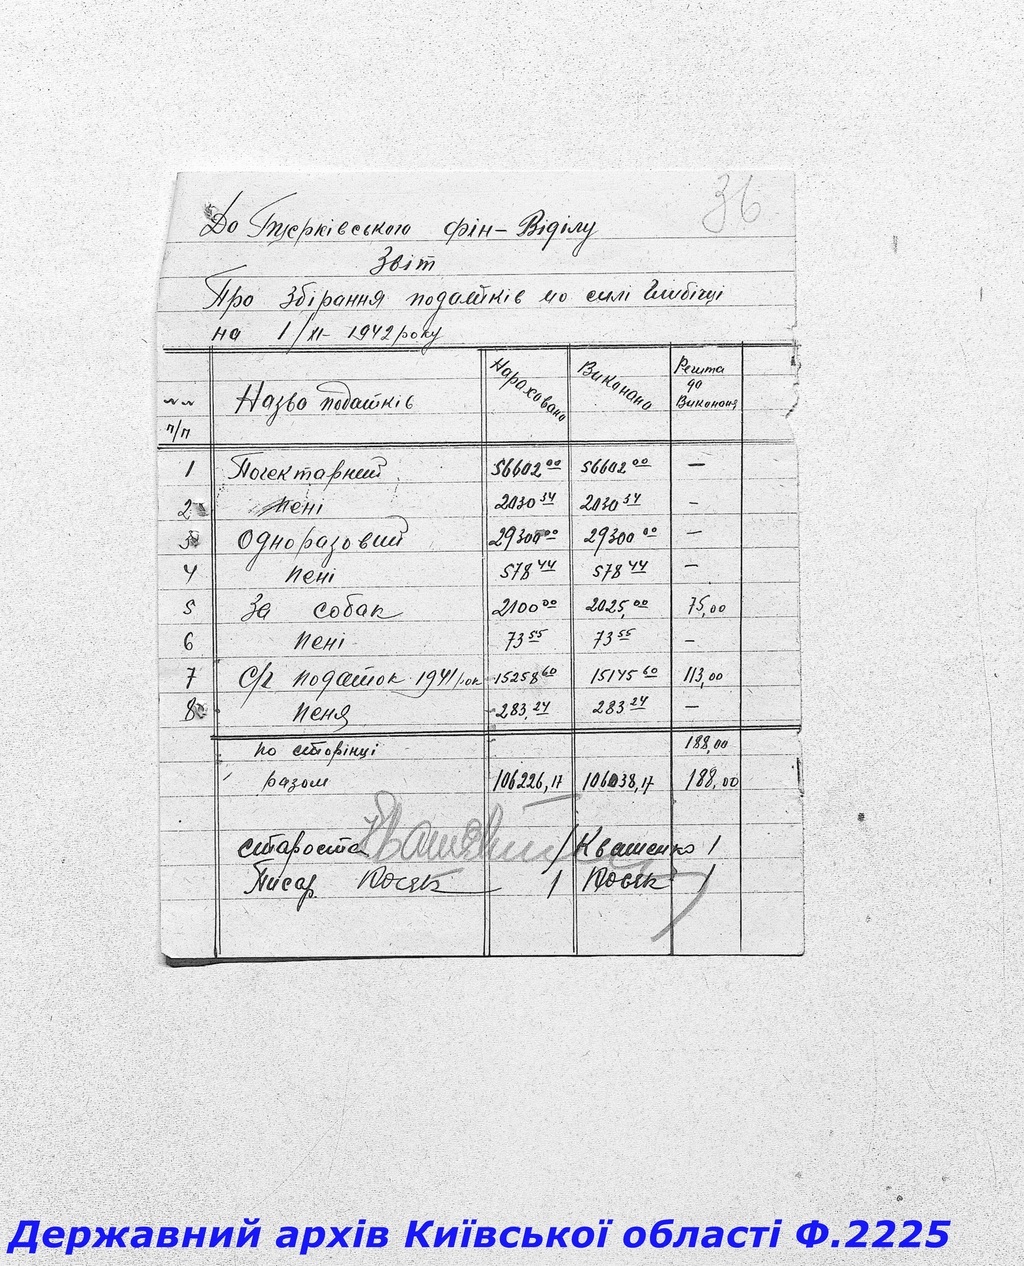 36
До Бишівського фін-Віділу
Звіт
Про Збірання податків по силі
на 1/XI- 1942 року
п/п Назва податків Нараховано Виконано Решта до Виконаня
1 Погектарний 56602 00 56602 00 —
2 Пені 2030 34 2030 34 -
3 Одноразовий 29300 00 29300 00 —
4 Пені 578 44 578 44 —
5 За собак 2100 00 2025,00 75,00
6 Пені 73 55 73 55 -
7 С/г податок 1941 рок 15258 60 15145 60 113,00
8 Пеня 283,24 283 24 —
по сторінці 188,00
разом 106226,17 106038,17 188,00
староста /Квашенко/
Писар Косяк / Косяк /
Державний архів Київської області Ф.2225